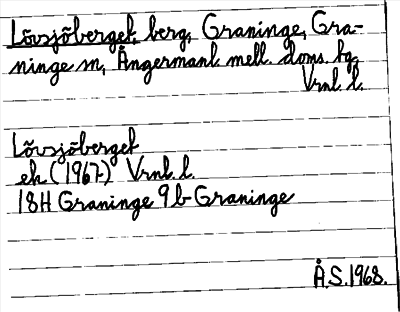 Lövsjöberget, berg, Graninge, Gra-
ninge sn, Ångermanl. mell. doms. hg,
Vrnl. l.
Lövsjöberget
ek. (1967) Vrnl. l.
18H Graninge 9 b Graninge
Å.S. 1968.